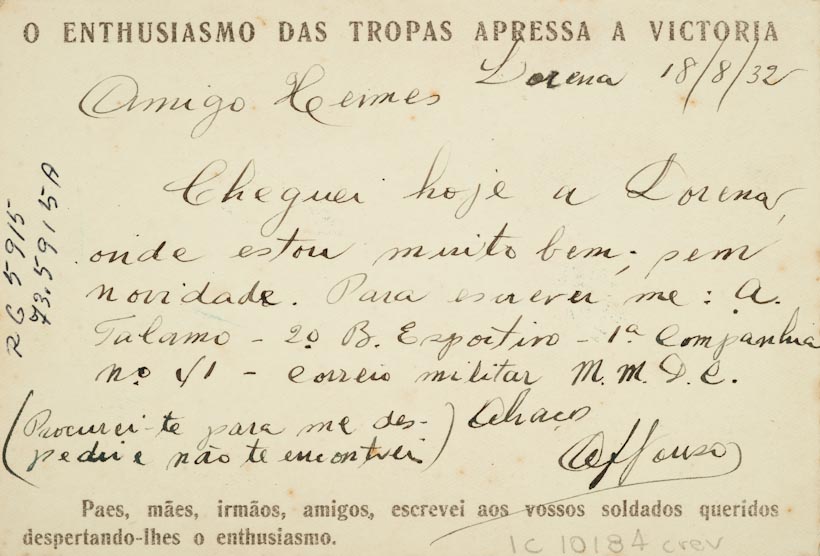 O ENTHUSIASMO DAS TROPAS APRESSA A VICTORIA
Lorena 18/8/32
Amigo Hermes
Cheguei hoje a Lorena,
onde estou muito bem, sem
novidade. Para escrever me: A.
Talamo - 2º B. Esportivo - 1ª Companhia
nº 41 - Correio militar M. M. D. C.
(Procurei-te para me des-
pedir e não te encontrei)
Abraços
Affonso
Paes, mães, irmãos, amigos, escrevei aos vossos soldados queridos
despertando-lhes o enthusiasmo.
RG 5915
73.5915A
IC 10184 crev